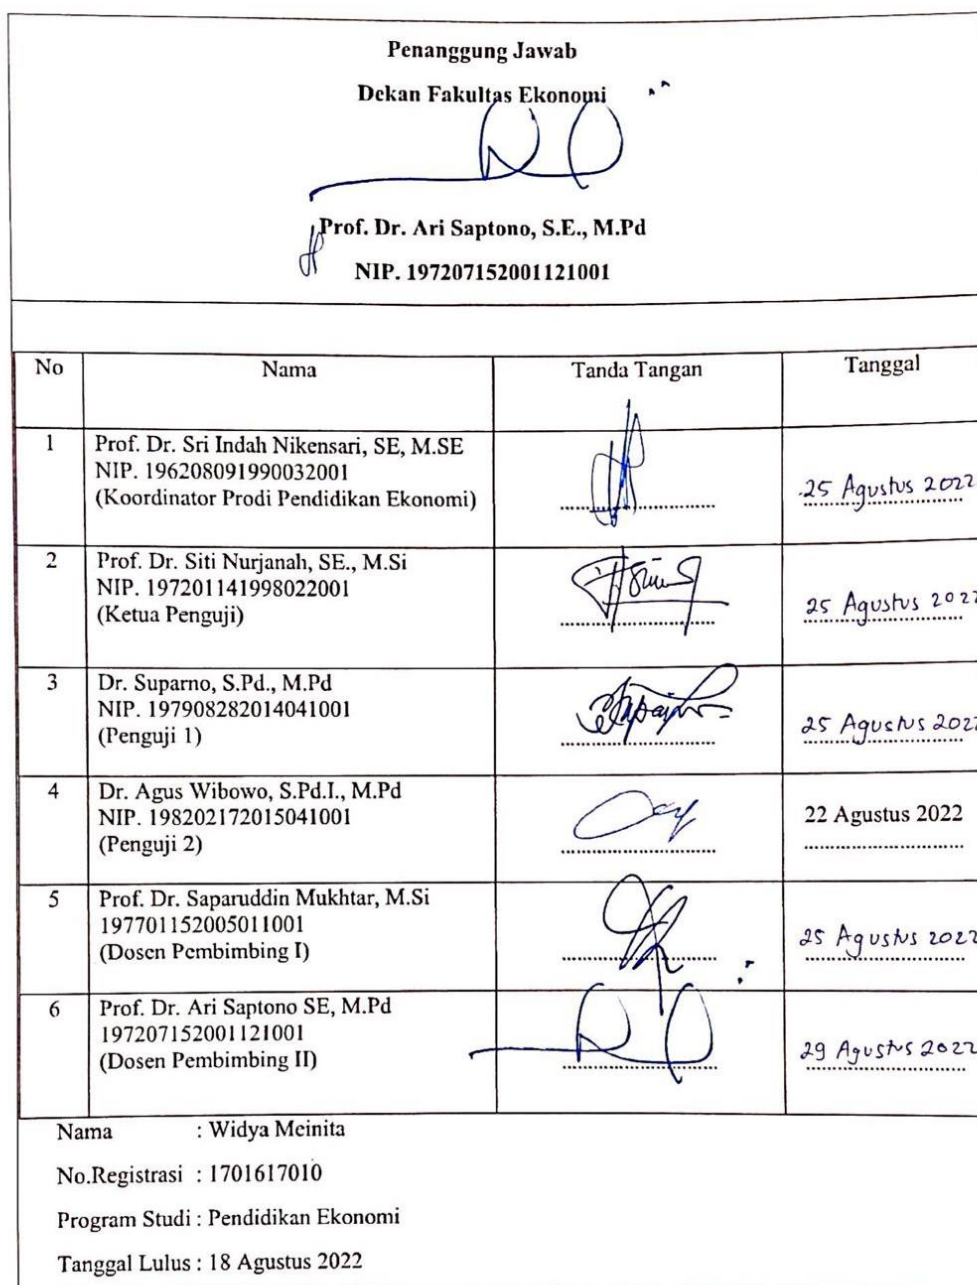 Penanggung Jawab
Dekan Fakultas Ekonomi
Prof. Dr. Ari Saptono, S.E., M.Pd
NIP. 197207152001121001
No Nama Tanda Tangan Tanggal
1 Prof. Dr. Sri Indah Nikensari, SE, M.SE
NIP. 196208091990032001
(Koordinator Prodi Pendidikan Ekonomi) 25 Agustus 2022
2 Prof. Dr. Siti Nurjanah, SE., M.Si
NIP. 197201141998022001
(Ketua Penguji) 25 Agustus 2022
3 Dr. Suparno, S.Pd., M.Pd
NIP. 197908282014041001
(Penguji 1) 25 Agustus 2022
4 Dr. Agus Wibowo, S.Pd.I., M.Pd
NIP. 198202172015041001 22 Agustus 2022
(Penguji 2)
5 Prof. Dr. Saparuddin Mukhtar, M.Si
197701152005011001
(Dosen Pembimbing I) 25 Agustus 2022
6 Prof. Dr. Ari Saptono SE, M.Pd
197207152001121001
(Dosen Pembimbing II) 29 Agustus 2022
Nama : Widya Meinita
No.Registrasi : 1701617010
Program Studi : Pendidikan Ekonomi
Tanggal Lulus : 18 Agustus 2022